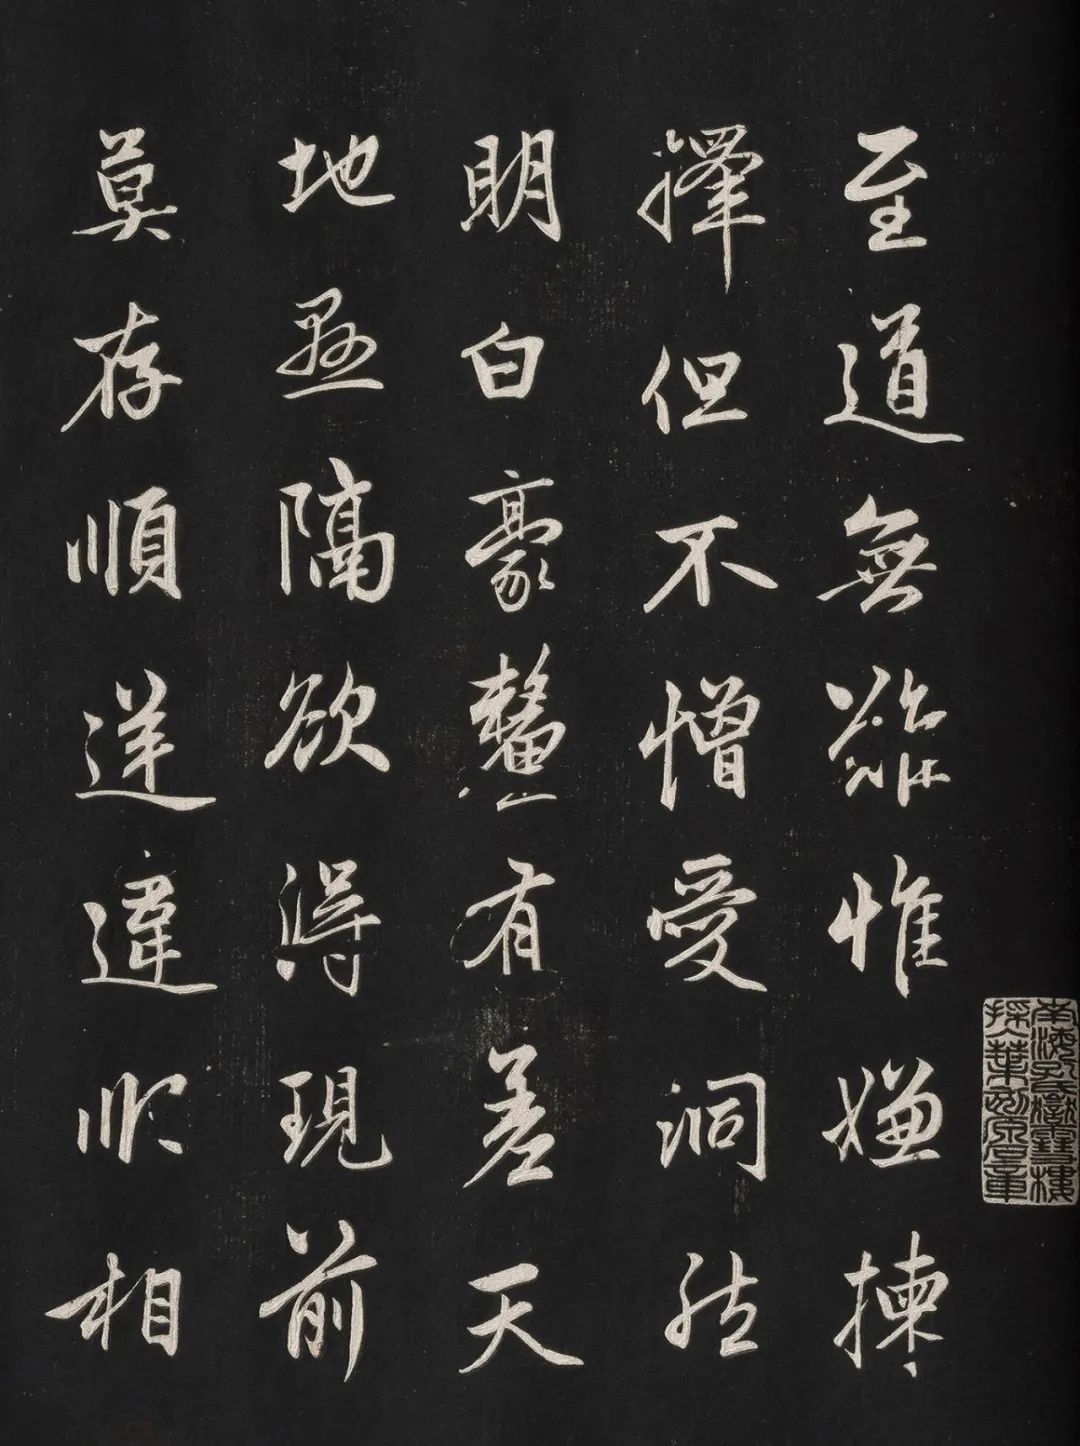 至道無難惟嫌揀
擇但不憎愛洞然
明白豪釐有差天
地懸隔欲得現前
莫存順逆違順相
南海孔氏嶽雪樓